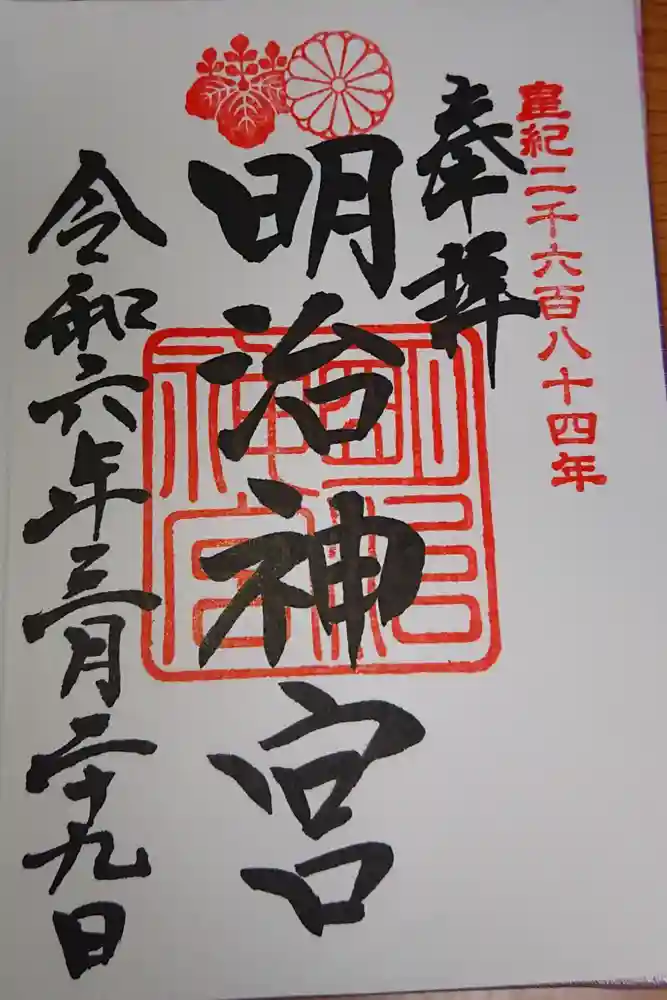 皇紀二千六百八十四年
奉拝
明治神宮
明治神宮
令和六年三月二十九日